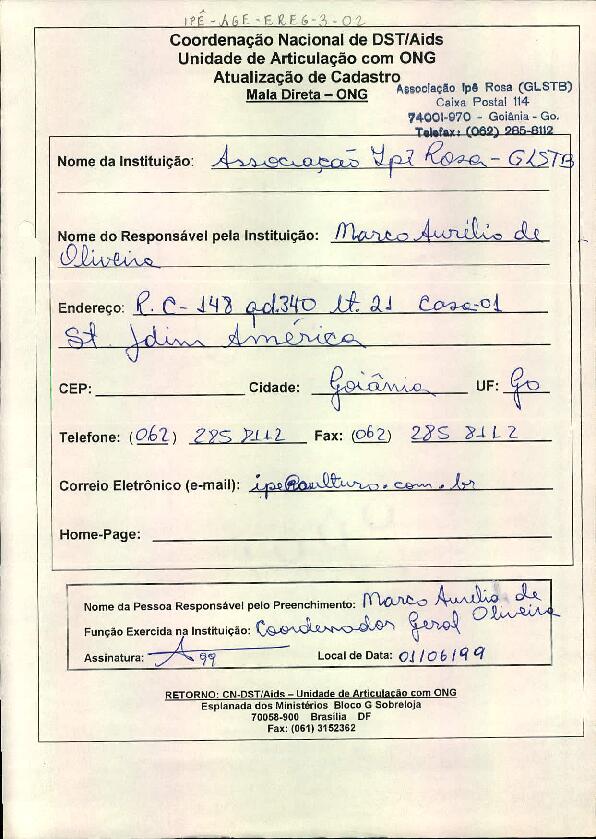 IPÊ-AGE-EREG-3-02
Coordenação Nacional de DST/Aids
Unidade de Articulação com ONG
Atualização de Cadastro
Mala Direta – ONG
Associação Ipê Rosa (GLSTB)
Caixa Postal 114
74001-970 - Goiânia - Go.
Telefax: (062) 285-8112
Nome da Instituição: Associação Ipê Rosa - GLSTB
Nome do Responsável pela Instituição: Marco Aurélio de
Oliveira
Endereço: R. C-148 qd.340 lt. 21 casa-01
St. Jdim América
CEP: Cidade: Goiânia UF: Go
Telefone: (062) 285 8112 Fax: (062) 285 8112
Correio Eletrônico (e-mail): .com.br
Home-Page:
Nome da Pessoa Responsável pelo Preenchimento: Marco Aurélio de
Oliveira
Função Exercida na Instituição: Coordenador Geral
Assinatura: Local de Data: 01/06/99
RETORNO: CN-DST/Aids – Unidade de Articulação com ONG
Esplanada dos Ministérios Bloco G Sobreloja
70058-900 Brasilia DF
Fax: (061) 3152362